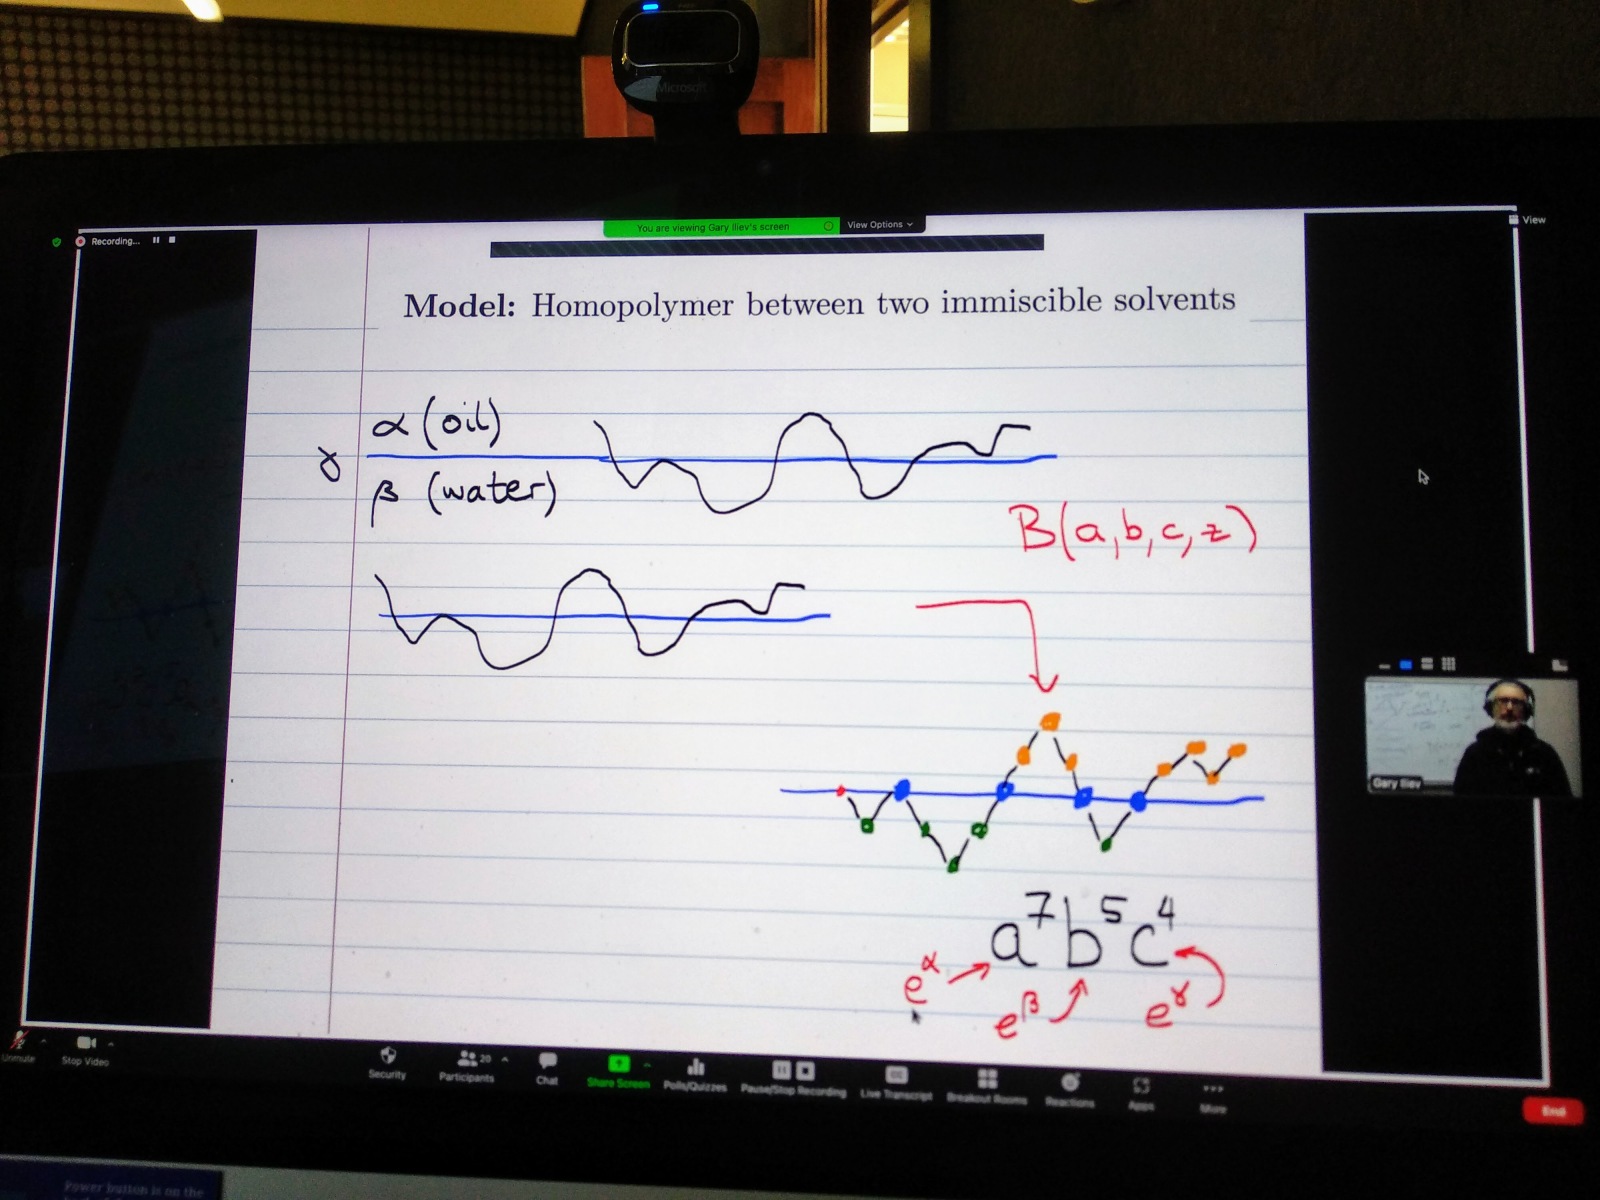 Microsoft
Recording...
You are viewing Gary Iliev's screen
View Options
View
Model: Homopolymer between two immiscible solvents
α (oil)
γ
β (water)
B(a,b,c,z)
Gary Iliev
a⁷b⁵c⁴
e^α
e^β
e^γ
Unmute
Stop Video
Security
Participants
20
Chat
Share Screen
Polls/Quizzes
Pause/Stop Recording
CC
Live Transcript
Breakout Rooms
Reactions
Apps
More
End
Power button is on the